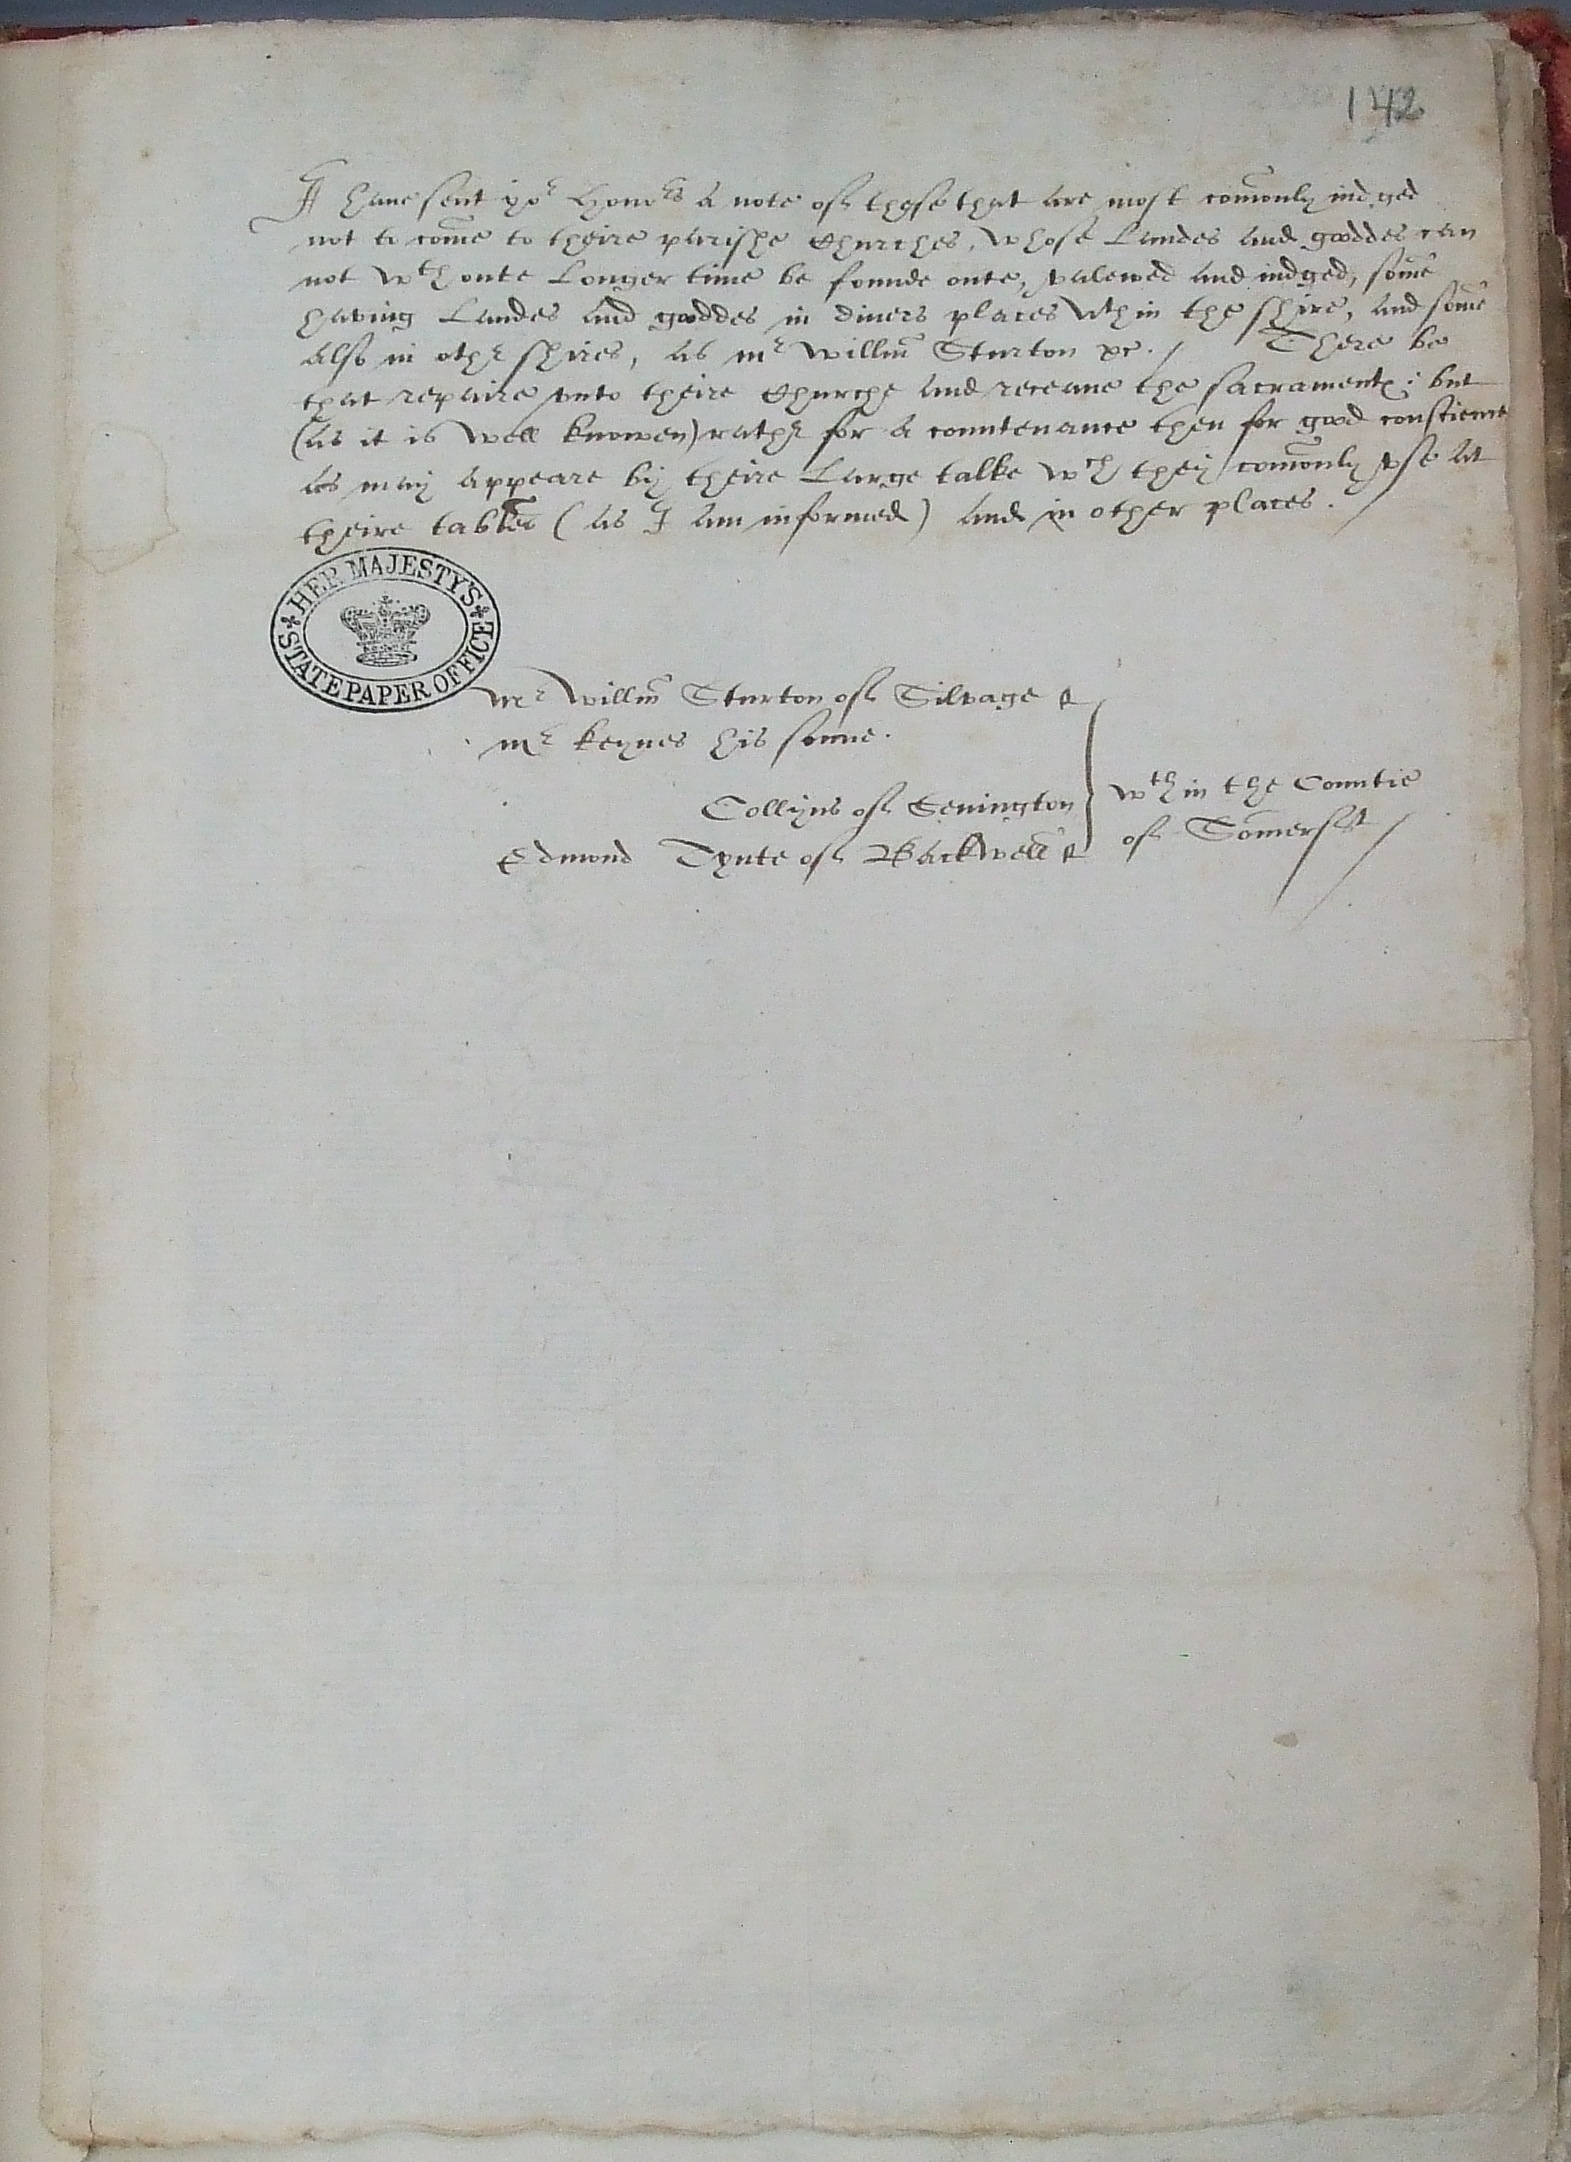 142
I haue sent yor Honors a note of those that are most comonly iudged
not to come to theire parishe Churches, whose Landes and gooddes can
not wthoute Longer time be founde oute, valewed and iudged, some
having Landes and gooddes in diuers places wthin the shire, and some
also in othr shires, as mr Willm Sturton &c. / There be
that repaire vnto theire Churche and receaue the sacrament: but
(as it is well knowen) rathr for a countenance then for good conscience
as may appeare by theire Large talke wch they comonly vse at
theire tables (as I am informed) and in other places. /
HER MAJESTY'S
STATE PAPER OFFICE
Mr Willm Sturton of Silvage
Mr Keynes his sonne.
Collyns of Seuington
Edmond Tynte of Backwell
wthin the Countie
of Somerset /